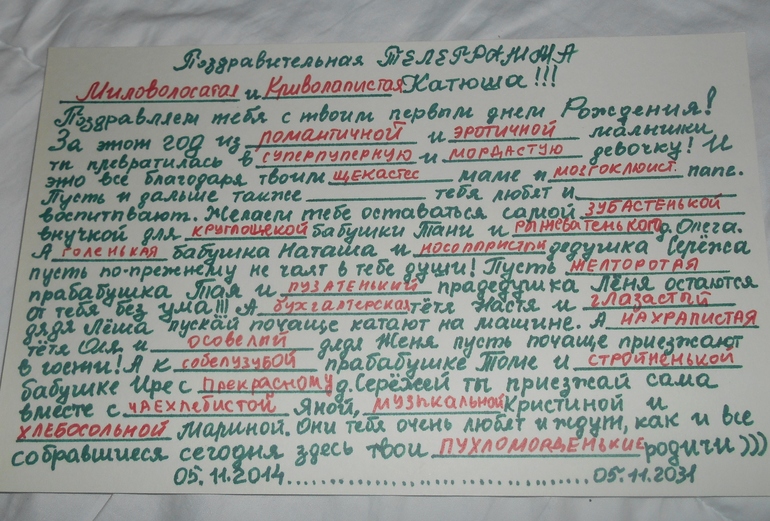 Поздравительная ТЕЛЕГРАММА
Миловолосатая и Криволапистая Катюша!!!
Поздравляем тебя с твоим первым днем Рождения!
За этот год из романтичной и эротичной малышки
ты превратилась в суперпуперную и мордастую девочку! И
это все благодаря твоим щекастес маме и мозгоклюист. папе.
Пусть и дальше также __________ тебя любят и __________
воспитывают. Желаем тебе оставаться самой зубастенькой
внучкой для круглощекой бабушки Тани и рыжеватенького д. Олега.
А голенькая бабушка Наташа и дедушка Серёжа
пусть по-прежнему не чаят в тебе души! Пусть желторотая
прабабушка Тая и пузатенький прадедушка Лёня остаются
от тебя без ума!!! А бухгалтерская тётя Настя и глазастый
дядя Лёша пускай почаще катают на машине. А нахрапистая
тётя Оля и осовелый дядя Женя пусть почаще приезжают
в гости! А к собелузубой прабабушке Томе и стройненькой
бабушке Ире с прекрасному д. Серёжей ты приезжай сама
вместе с чаехлебистой Яной, музыкальной Кристиной и
хлебосольной Мариной. Они тебя очень любят и ждут, как и все
собравшиеся сегодня здесь твои пухломорденькие родичи)))
05.11.2014....................................05.11.2031